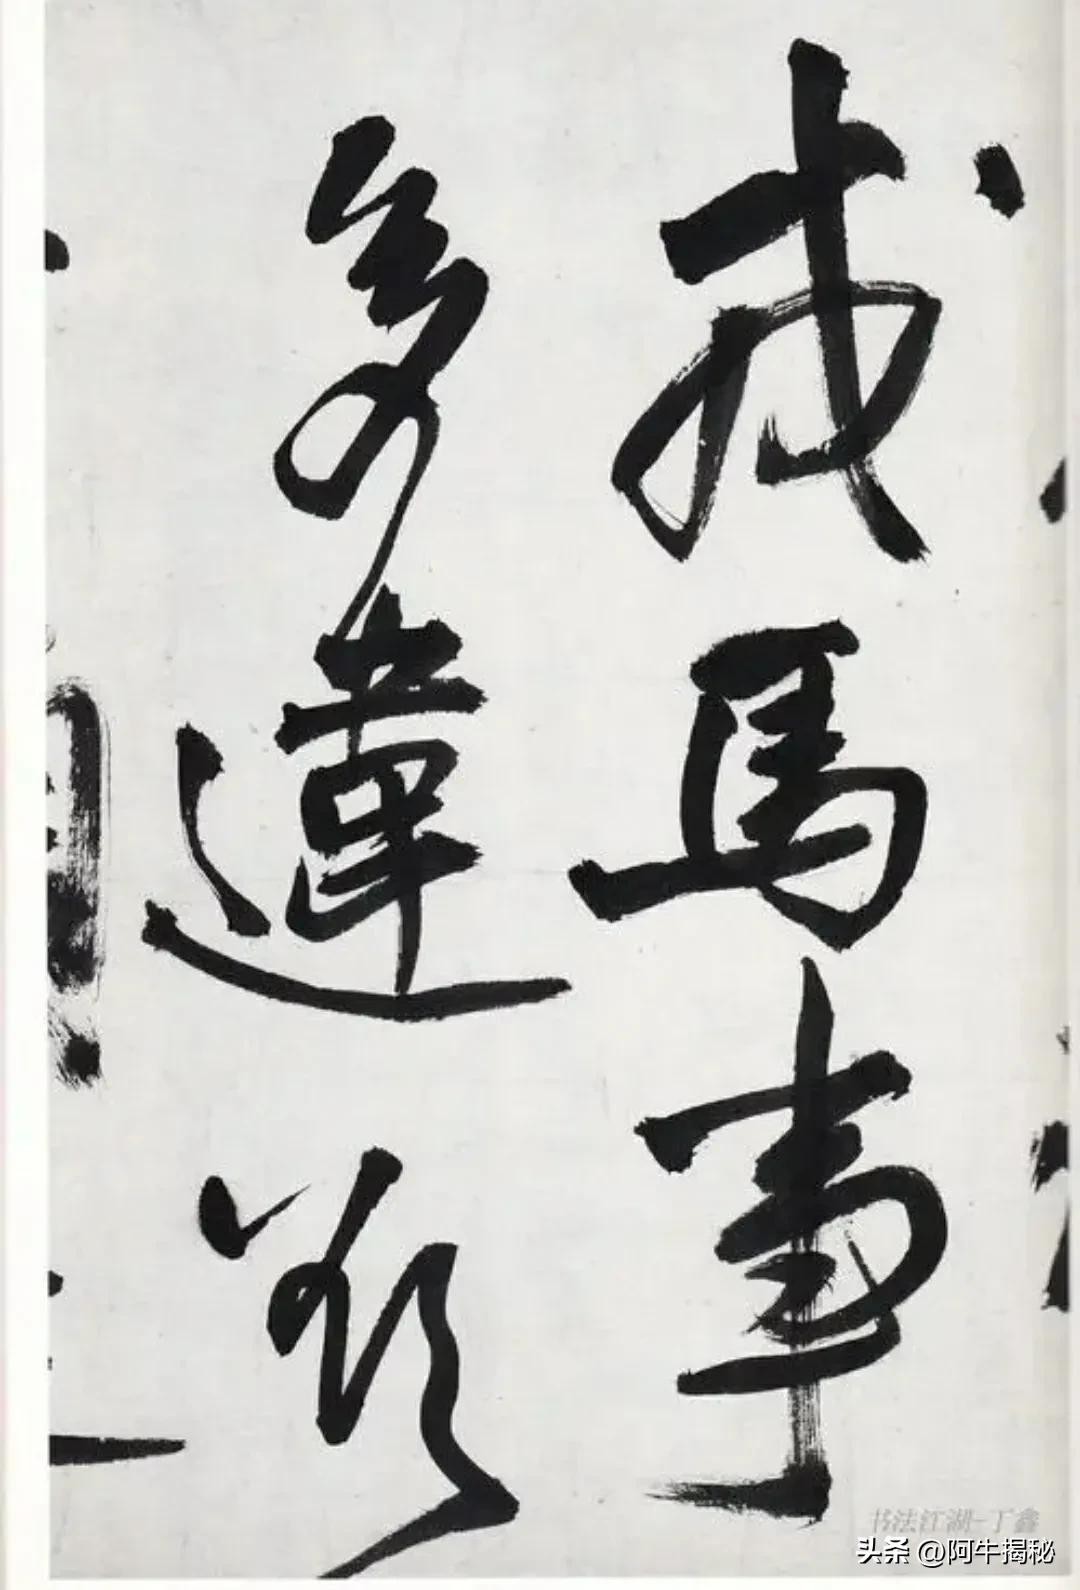 戎馬事
多違
书法江湖-丁鑫
头条 @阿牛揭秘